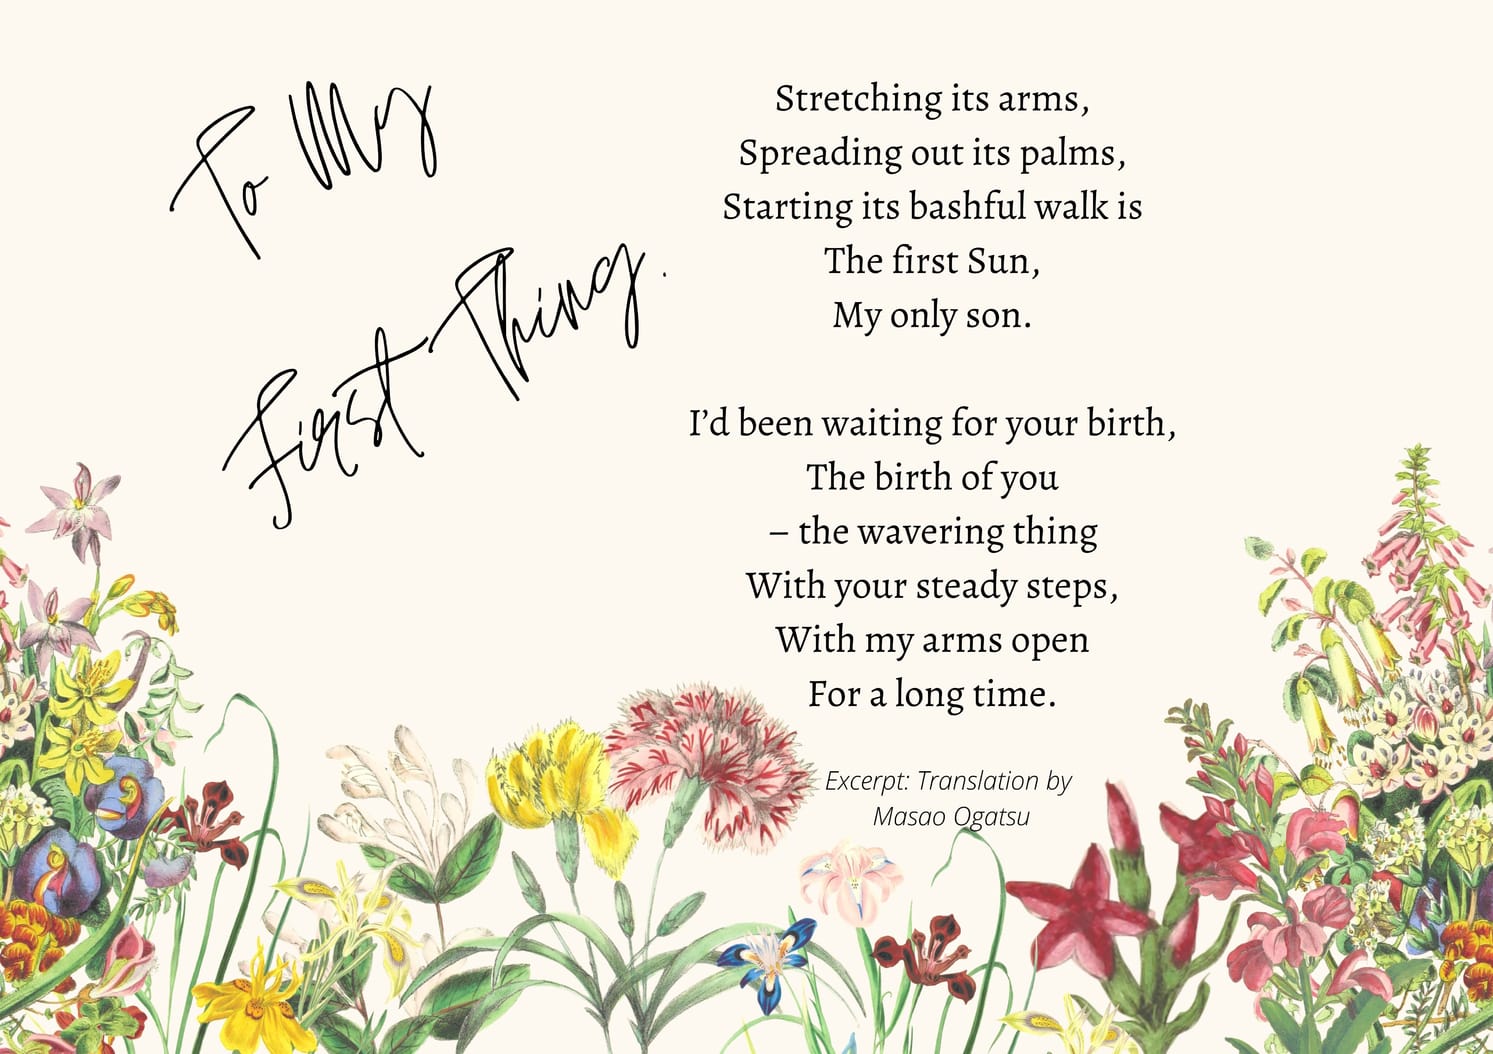 To My
First Thing.
Stretching its arms,
Spreading out its palms,
Starting its bashful walk is
The first Sun,
My only son.
I’d been waiting for your birth,
The birth of you
– the wavering thing
With your steady steps,
With my arms open
For a long time.
Excerpt: Translation by
Masao Ogatsu